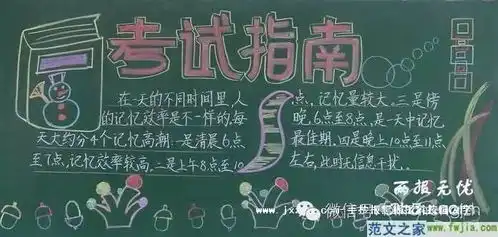 考试指南
在一天的不同时间里,人
的记忆效率是不一样的,每
天大约分4个记忆高潮.一是清晨6点
至7点,记忆效率较高,二是上午8点至10
点,记忆量较大,三是傍
晚,6点至8点,是一天中记忆
最佳期,四是晚上10点至11点
左右,此时无信息干扰.
画报无优
范文之家
www.fwjia.com